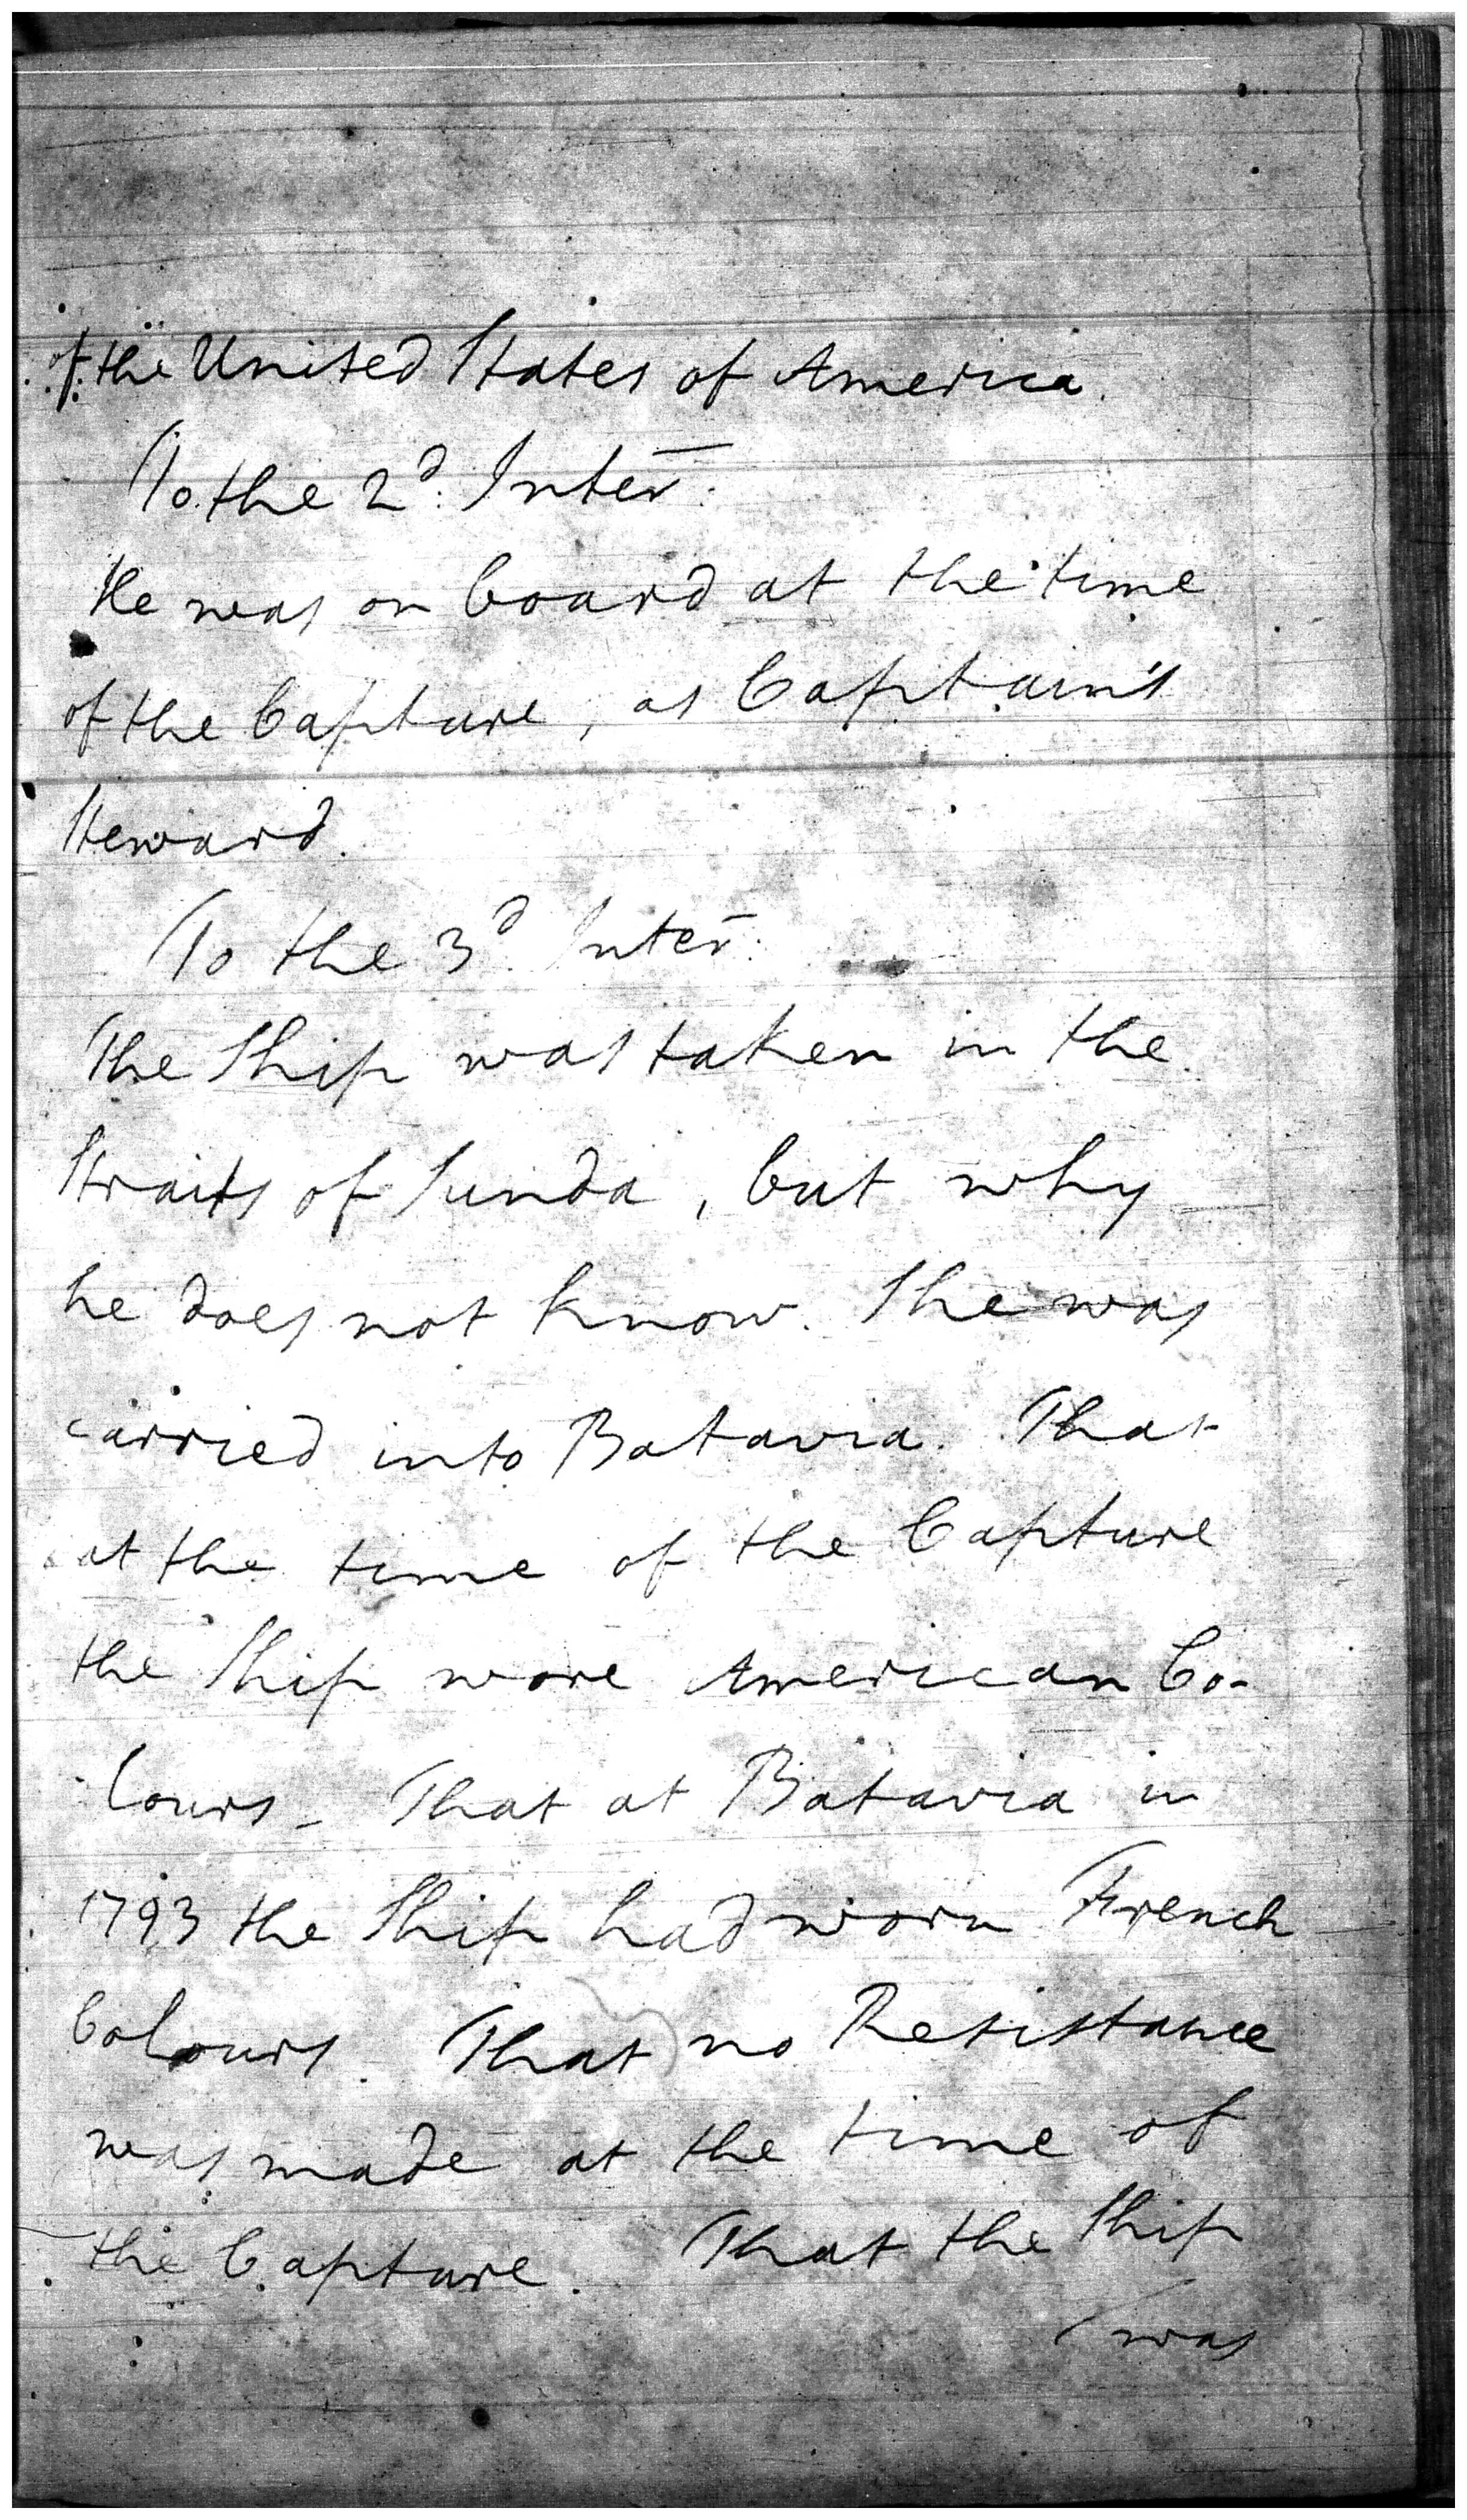 of the United States of America.
To the 2d. Inter.
He was on board at the time
of the Capture, as Captain's
Steward.
To the 3d. Inter.
The Ship was taken in the
Straits of Sunda, but why
he does not know. She was
carried into Batavia. That
at the time of the Capture
the Ship wore American Co-
lours - That at Batavia in
1793 the Ship had worn French
Colours. That no Resistance
was made at the time of
the Capture. That the Ship
/was